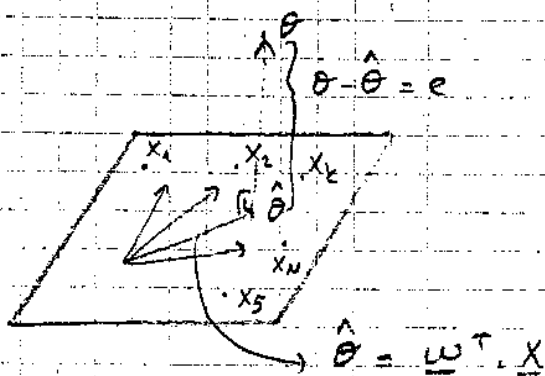 θ
θ - θ̂ = e
x₁ x₂ x_k
θ̂
x_N
x₅
θ̂ = w̲ᵀ . X̲